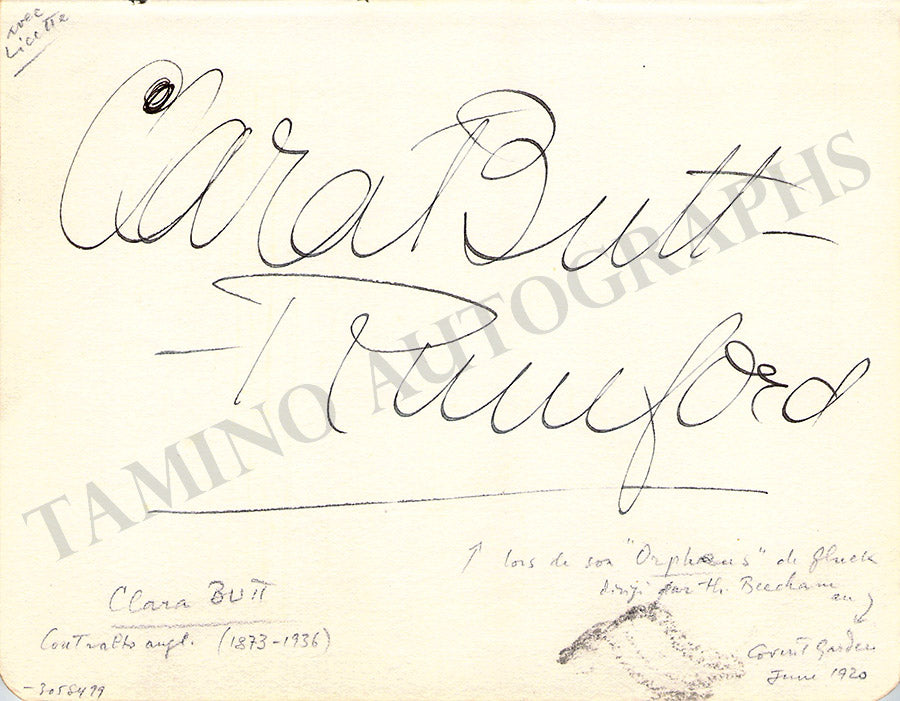 avec
Licette
Clara Butt -
- Rumford
TAMINO AUTOGRAPHS
↑ lors de son "Orpheus" de Gluck
dirigé par Th. Beecham
au
Covent Garden
June 1920
Clara BUTT
Contralto angl. (1873-1936)
-3058499